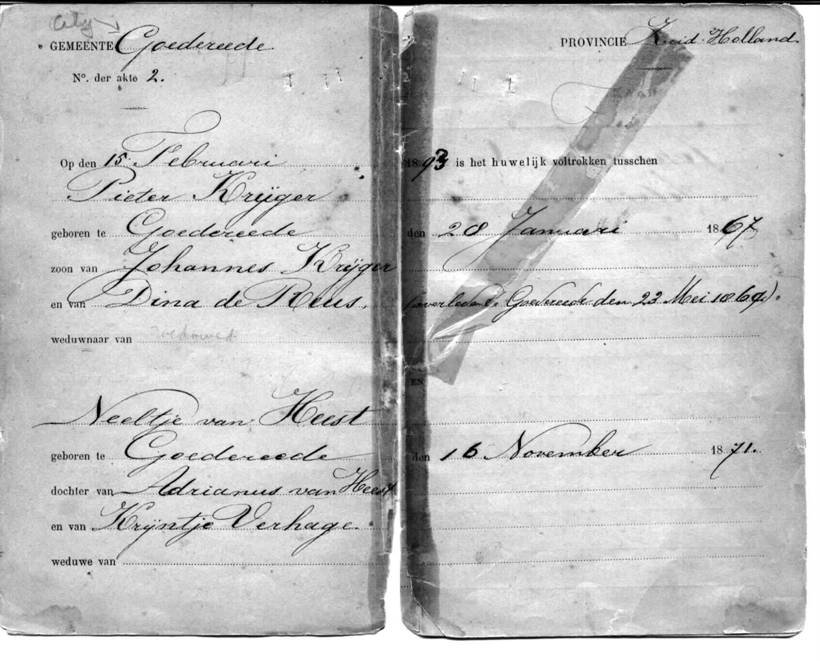 City
GEMEENTE Goedereede PROVINCIE Zuid-Holland.
No. der akte 2.
Op den 15 Februari 1893 is het huwelijk voltrokken tusschen
Pieter Krijger
geboren te Goedereede den 28 Januari 1867
zoon van Johannes Krijger
en van Dina de Reus, (overleden te Goedereede den 23 Mei 1869).
weduwnaar van widowed
EN
Neeltje van Heest
geboren te Goedereede den 16 November 1871.
dochter van Adrianus van Heest
en van Krijntje Verhage.
weduwe van